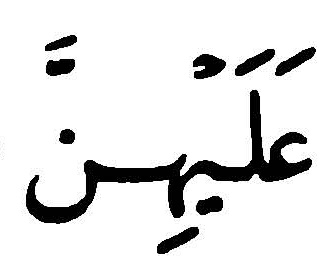 عَلَيْهِنَّ